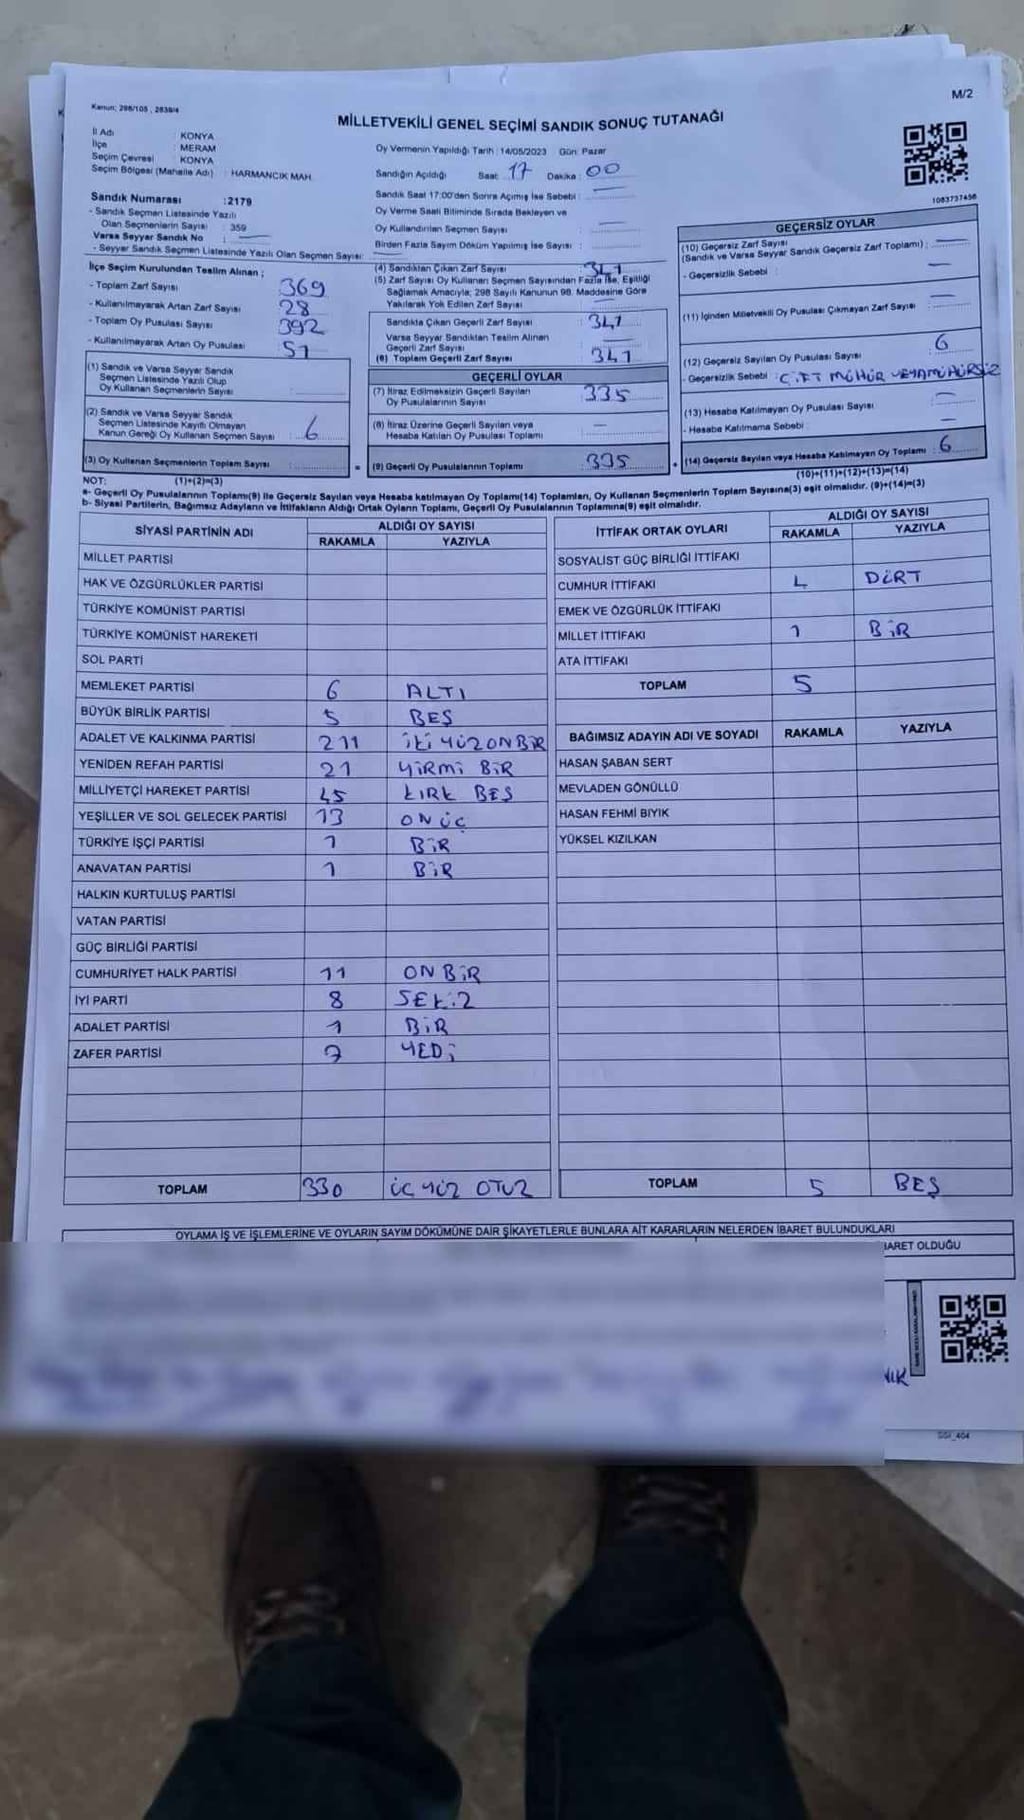 Kanun: 298/105 , 2839/4
M/2
MİLLETVEKİLİ GENEL SEÇİMİ SANDIK SONUÇ TUTANAĞI
İl Adı : KONYA
İlçe : MERAM
Seçim Çevresi : KONYA
Seçim Bölgesi (Mahalle Adı) : HARMANCIK MAH.
Oy Vermenin Yapıldığı Tarih : 14/05/2023 Gün: Pazar
Sandığın Açıldığı Saat: 17 Dakika : 00
Sandık Saat 17:00'den Sonra Açılmış İse Sebebi :
Oy Verme Saati Bitiminde Sırada Bekleyen ve
Oy Kullandırılan Seçmen Sayısı :
Birden Fazla Sayım Döküm Yapılmış İse Sayısı :
1083737456
Sandık Numarası : 2179
- Sandık Seçmen Listesinde Yazılı
Olan Seçmenlerin Sayısı : 359
Varsa Seyyar Sandık No :
- Seyyar Sandık Seçmen Listesinde Yazılı Olan Seçmen Sayısı :
İlçe Seçim Kurulundan Teslim Alınan ;
- Toplam Zarf Sayısı : 369
- Kullanılmayarak Artan Zarf Sayısı : 28
- Toplam Oy Pusulası Sayısı : 392
- Kullanılmayarak Artan Oy Pusulası : 51
(1) Sandık ve Varsa Seyyar Sandık
Seçmen Listesinde Yazılı Olup
Oy Kullanan Seçmenlerin Sayısı :
(2) Sandık ve Varsa Seyyar Sandık
Seçmen Listesinde Kayıtlı Olmayan
Kanun Gereği Oy Kullanan Seçmen Sayısı : 6
(3) Oy Kullanan Seçmenlerin Toplam Sayısı :
(4) Sandıktan Çıkan Zarf Sayısı : 341
(5) Zarf Sayısı Oy Kullanan Seçmen Sayısından Fazla İse, Eşitliği
Sağlamak Amacıyla; 298 Sayılı Kanunun 98. Maddesine Göre
Yakılarak Yok Edilen Zarf Sayısı :
Sandıkta Çıkan Geçerli Zarf Sayısı : 341
Varsa Seyyar Sandıktan Teslim Alınan
Geçerli Zarf Sayısı :
(6) Toplam Geçerli Zarf Sayısı : 341
GEÇERLİ OYLAR
(7) İtiraz Edilmeksizin Geçerli Sayılan
Oy Pusulalarının Sayısı : 335
(8) İtiraz Üzerine Geçerli Sayılan veya
Hesaba Katılan Oy Pusulası Toplamı :
= (9) Geçerli Oy Pusulalarının Toplamı : 335 +
GEÇERSİZ OYLAR
(10) Geçersiz Zarf Sayısı
(Sandık ve Varsa Seyyar Sandık Geçersiz Zarf Toplamı) :
- Geçersizlik Sebebi :
(11) İçinden Milletvekili Oy Pusulası Çıkmayan Zarf Sayısı :
(12) Geçersiz Sayılan Oy Pusulası Sayısı : 6
- Geçersizlik Sebebi : ÇİFT MÜHÜR VEYA MÜHÜRSÜZ
(13) Hesaba Katılmayan Oy Pusulası Sayısı :
- Hesaba Katılmama Sebebi :
(14) Geçersiz Sayılan veya Hesaba Katılmayan Oy Toplamı : 6
NOT: (1)+(2)=(3)
(10)+(11)+(12)+(13)=(14)
a- Geçerli Oy Pusulalarının Toplamı(9) ile Geçersiz Sayılan veya Hesaba katılmayan Oy Toplamı(14) Toplamları, Oy Kullanan Seçmenlerin Toplam Sayısına(3) eşit olmalıdır. (9)+(14)=(3)
b- Siyasi Partilerin, Bağımsız Adayların ve İttifakların Aldığı Ortak Oyların Toplamı, Geçerli Oy Pusulalarının Toplamına(9) eşit olmalıdır.
SİYASİ PARTİNİN ADI ALDIĞI OY SAYISI
RAKAMLA YAZIYLA
MİLLET PARTİSİ
HAK VE ÖZGÜRLÜKLER PARTİSİ
TÜRKİYE KOMÜNİST PARTİSİ
TÜRKİYE KOMÜNİST HAREKETİ
SOL PARTİ
MEMLEKET PARTİSİ 6 ALTI
BÜYÜK BİRLİK PARTİSİ 5 BEŞ
ADALET VE KALKINMA PARTİSİ 211 İKİ YÜZ ON BİR
YENİDEN REFAH PARTİSİ 21 YİRMİ BİR
MİLLİYETÇİ HAREKET PARTİSİ 45 KIRK BEŞ
YEŞİLLER VE SOL GELECEK PARTİSİ 13 ON ÜÇ
TÜRKİYE İŞÇİ PARTİSİ 1 BİR
ANAVATAN PARTİSİ 1 BİR
HALKIN KURTULUŞ PARTİSİ
VATAN PARTİSİ
GÜÇ BİRLİĞİ PARTİSİ
CUMHURİYET HALK PARTİSİ 11 ON BİR
İYİ PARTİ 8 SEKİZ
ADALET PARTİSİ 1 BİR
ZAFER PARTİSİ 7 YEDİ
TOPLAM 330 ÜÇ YÜZ OTUZ
İTTİFAK ORTAK OYLARI ALDIĞI OY SAYISI
RAKAMLA YAZIYLA
SOSYALİST GÜÇ BİRLİĞİ İTTİFAKI
CUMHUR İTTİFAKI 4 DÖRT
EMEK VE ÖZGÜRLÜK İTTİFAKI
MİLLET İTTİFAKI 1 BİR
ATA İTTİFAKI
TOPLAM 5
BAĞIMSIZ ADAYIN ADI VE SOYADI RAKAMLA YAZIYLA
HASAN ŞABAN SERT
MEVLADEN GÖNÜLLÜ
HASAN FEHMİ BIYIK
YÜKSEL KIZILKAN
TOPLAM 5 BEŞ
OYLAMA İŞ VE İŞLEMLERİNE VE OYLARIN SAYIM DÖKÜMÜNE DAİR ŞİKAYETLERLE BUNLARA AİT KARARLARIN NELERDEN İBARET BULUNDUKLARI
BARET OLDUĞU